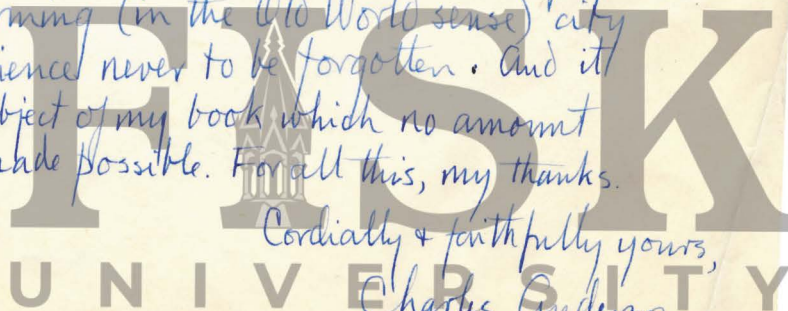 (in the Old World sense) city
never to be forgotten. And it
of my book which no amount
possible. For all this, my thanks.
Cordially & faithfully yours,
Charles
FISK
UNIVERSITY